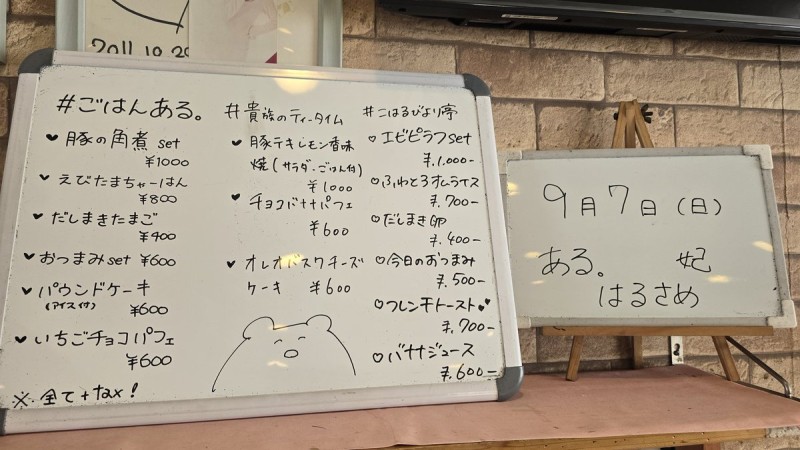 2011.10.29
#ごはんある。
♥豚の角煮 set
¥1000
♥えびたまちゃーはん
¥800
♥だしまきたまご
¥400
♥おつまみset ¥600
♥パウンドケーキ
(アイス付)
¥600
♥いちごチョコパフェ
¥600
※全て+tax!
#貴族のティータイム
♥豚テキレモン香味
焼(サラダ・ごはん付)
¥1000
♥チョコバナナパフェ
¥600
♥オレオバスクチーズ
ケーキ ¥600
#こはるびより亭
♡エビピラフset
¥.1.000-
♡ふわとろオムライス
¥.700-
♡だしまき卵
¥.400-
♡今日のおつまみ
¥.500-
♡フレンチトースト♥♥
¥.700-
♡バナナジュース
¥.600-
9月7日(日)
ある。 妃
はるさめ